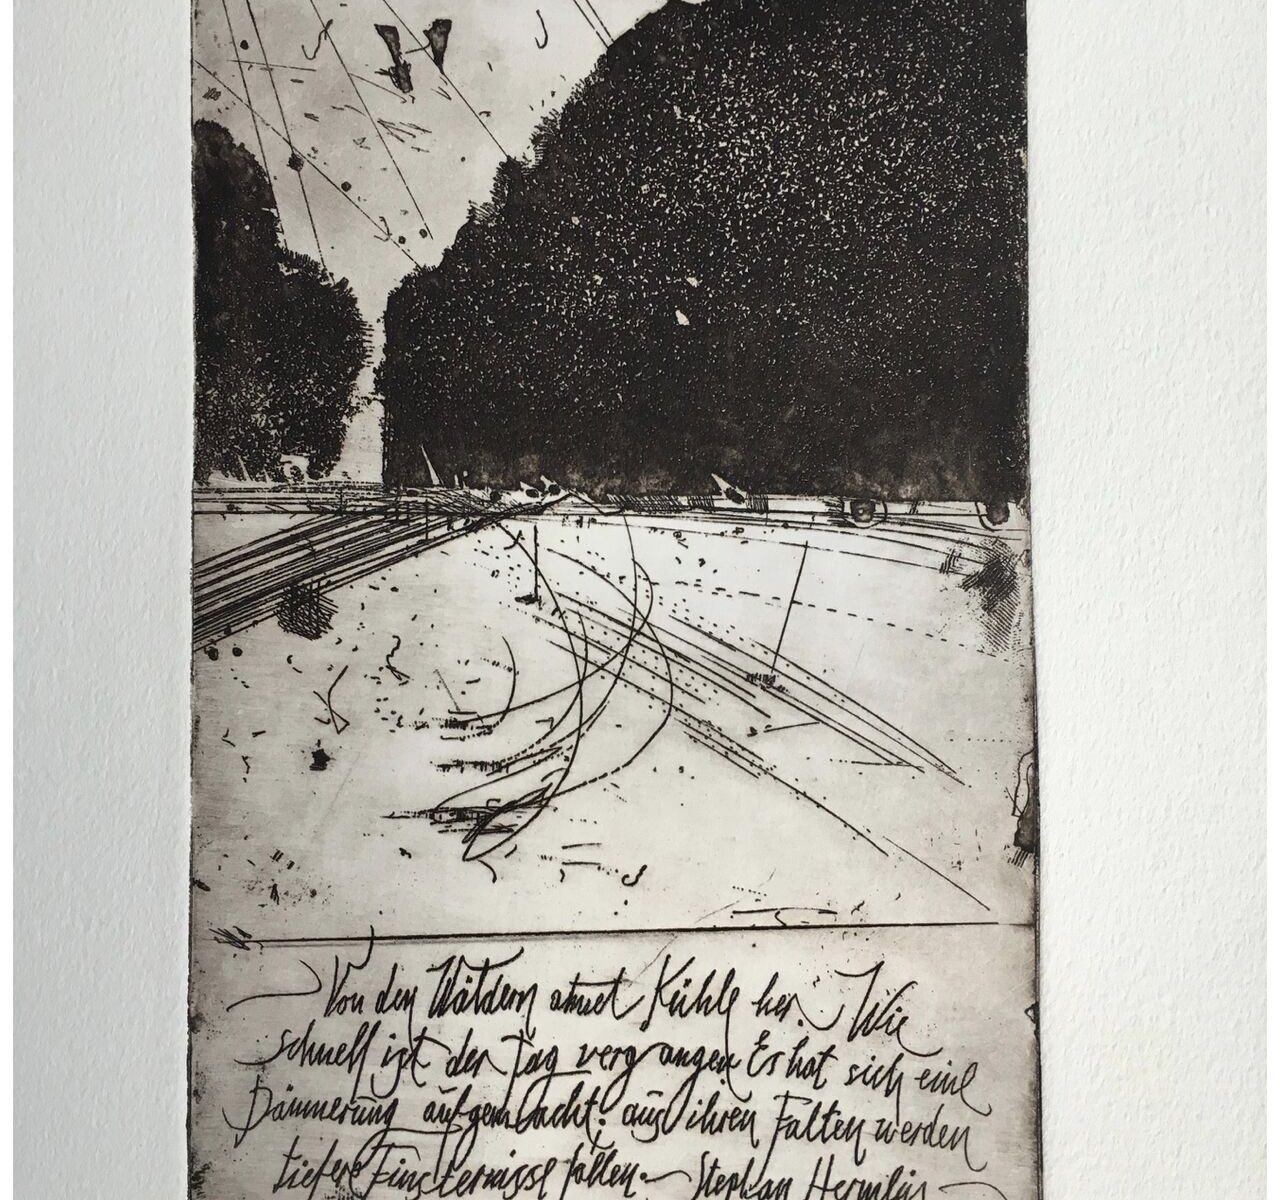 Von den Wäldern atmet Kühle her. Wie
schnell ist der Tag vergangen Es hat sich eine
Dämmerung aufgemacht: aus ihren Falten werden
tiefere Finsternisse fallen. – Stephan Hermlin